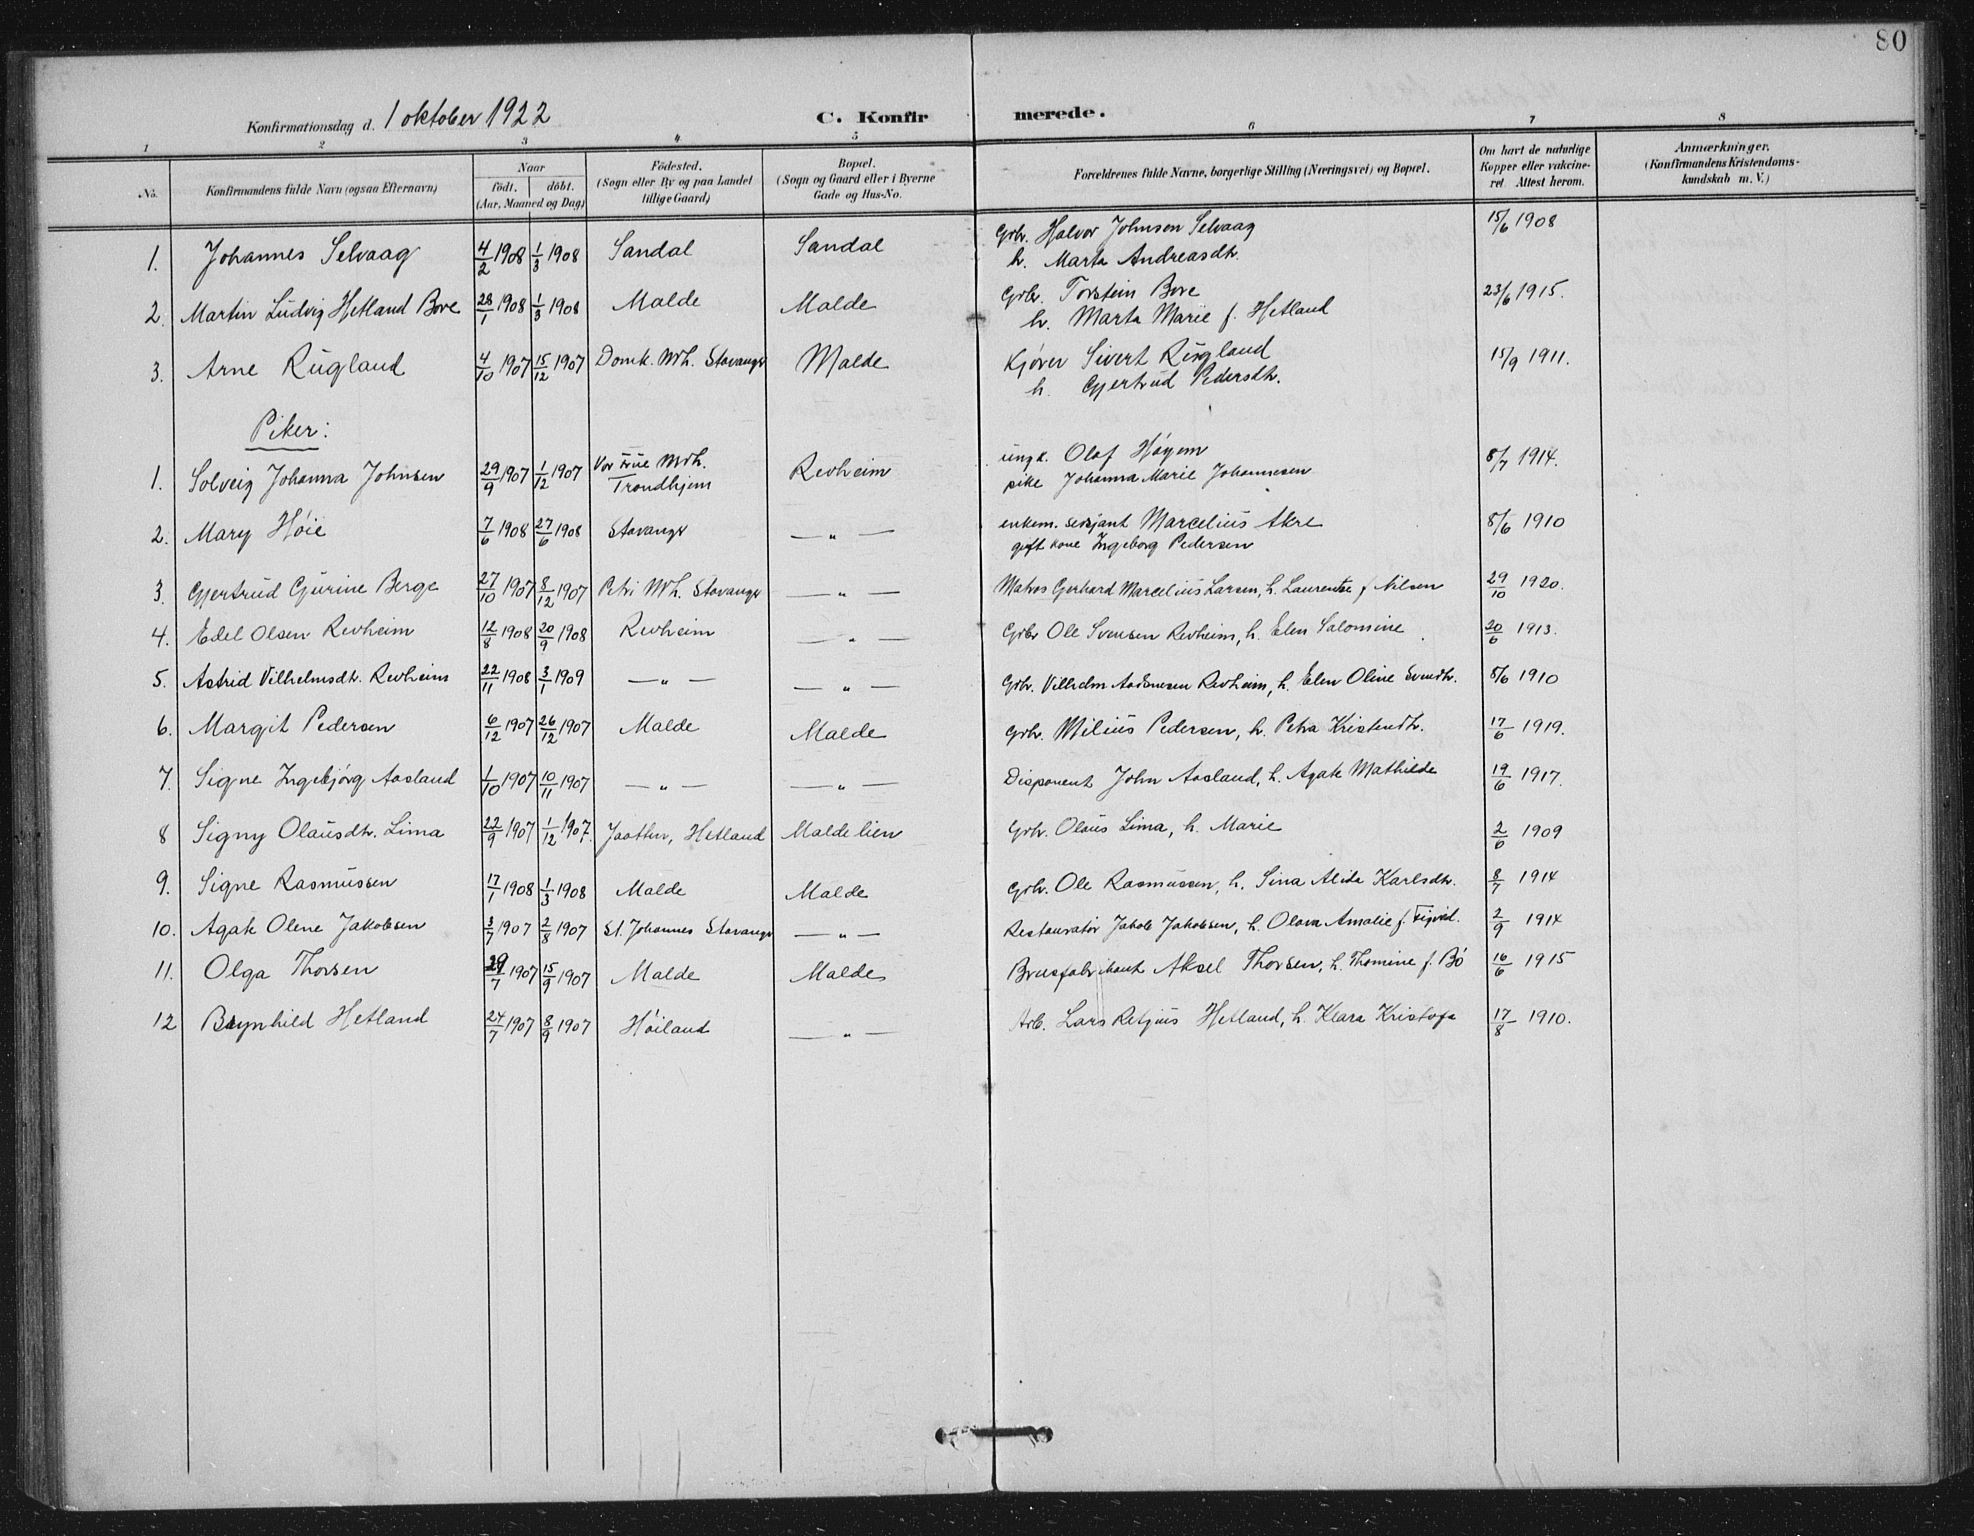 80
Konfirmationsdag d. 1 oktober 1922 C. Konfirmerede.
1 2 3 4 5 6 7 8
No. Konfirmandens fulde Navn (ogsaa Efternavn) Naar født. døbt. (Aar, Maaned og Dag) Fødested. (Sogn eller By og paa Landet tillige Gaard) Bopæl. (Sogn og Gaard eller i Byerne Gade og Hus-No. Forældrenes fulde Navne, borgerlige Stilling (Næringsvei) og Bopæl. Om havt de naturlige Kopper eller vakcineret. Attest herom. Anmærkninger. (Konfirmandens Kristendomskundskab m. V.)
1. Johannes Selvaag 4/2 1908 1/3 1908 Sandal Sandal Grbr. Halvor Johnsen Selvaag 15/6 1908
h. Marta Andreasdtr.
2. Martin Ludvig Hetland Bore 28/1 1908 1/3 1908 Malde Malde Grbr. Torstein Bore 23/6 1915.
h. Marta Marie f. Hetland
3. Arne Rugland 4/10 1907 15/12 1907 Domk. Mh. Stavanger Malde Kjører Sivert Rugland 15/9 1911.
h. Gjertrud Pedersdtr.
Piker:
1. Solveig Johanna Johnsen 29/9 1907 1/12 1907 Vor Frue Mh. Trondhjem Revheim ungk. Olaf Høyem 8/7 1914.
pike Johanna Marie Johannesen
2. Mary Høie 7/6 1908 27/6 1908 Stavanger — " — enkem. sersjant Marcelius Akre 8/6 1910
gift kone Ingeborg Pedersen
3. Gjertrud Gurine Berge 27/10 1907 8/12 1907 Petri Mh. Stavanger — " — Matros Gerhard Marcelius Larsen, h. Laurentze f Nilsen 29/10 1920.
4. Edel Olsen Revheim 12/8 1908 20/9 1908 Revheim — " — Grbr Ole Svensen Revheim, h. Elen Salomine 20/6 1913.
5. Astrid Vilhelmsdtr. Revheim 22/11 1908 3/1 1909 — " — — " — Grbr. Vilhelm Andersen Revheim, h. Elen Oline Svendtr. 8/6 1910
6. Margit Pedersen 6/12 1907 26/12 1907 Malde Malde Grbr. Milius Pedersen, h. Petra Kristendtr. 17/6 1919.
7. Signe Ingebjørg Aasland 1/10 1907 10/11 1907 — " — — " — Disponent John Aasland, h. Agate Mathilde 19/6 1917.
8 Signy Olausdtr. Lima 22/9 1907 1/12 1907. Jaatten, Hetland Maldelien Grbr. Olaus Lima, h. Marie 2/6 1909
9. Signe Rasmussen 17/1 1908 1/3 1908 Malde Malde Grbr. Ole Rasmussen, h. Sina Alida Karlsdtr. 8/7 1914
10. Agate Olene Jakobsen 3/7 1907 2/8 1907 St. Johannes Stavanger — " — Restauratør Jakob Jakobsen, h. Olava Amalie f. 2/9 1914
11. Olga Thorsen 29/7 1907 15/9 1907 Malde Malde Brusfabrikant Aksel Thorsen, h. Thomine f. Bø 16/6 1915
12 Brynhild Hetland 24/7 1907 8/9 1907 Høiland — " — Arb. Lars Retjius Hetland, h. Klara Kristofa 17/8 1910.